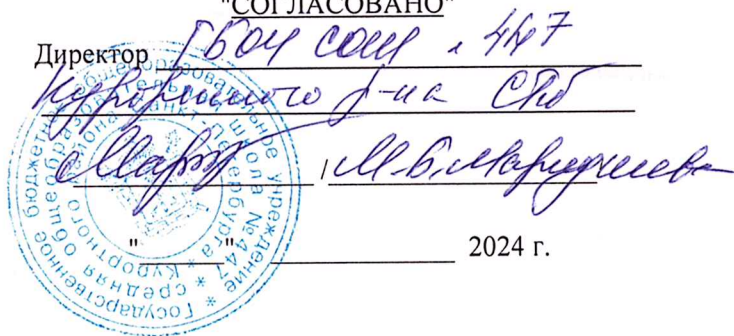 "СОГЛАСОВАНО"
Директор ГБОУ СОШ № 447
Курортного р-на СПб
/
"______" ______________ 2024 г.
Государственное бюджетное общеобразовательное учреждение
средняя общеобразовательная школа №447
Курортного района Санкт-Петербурга